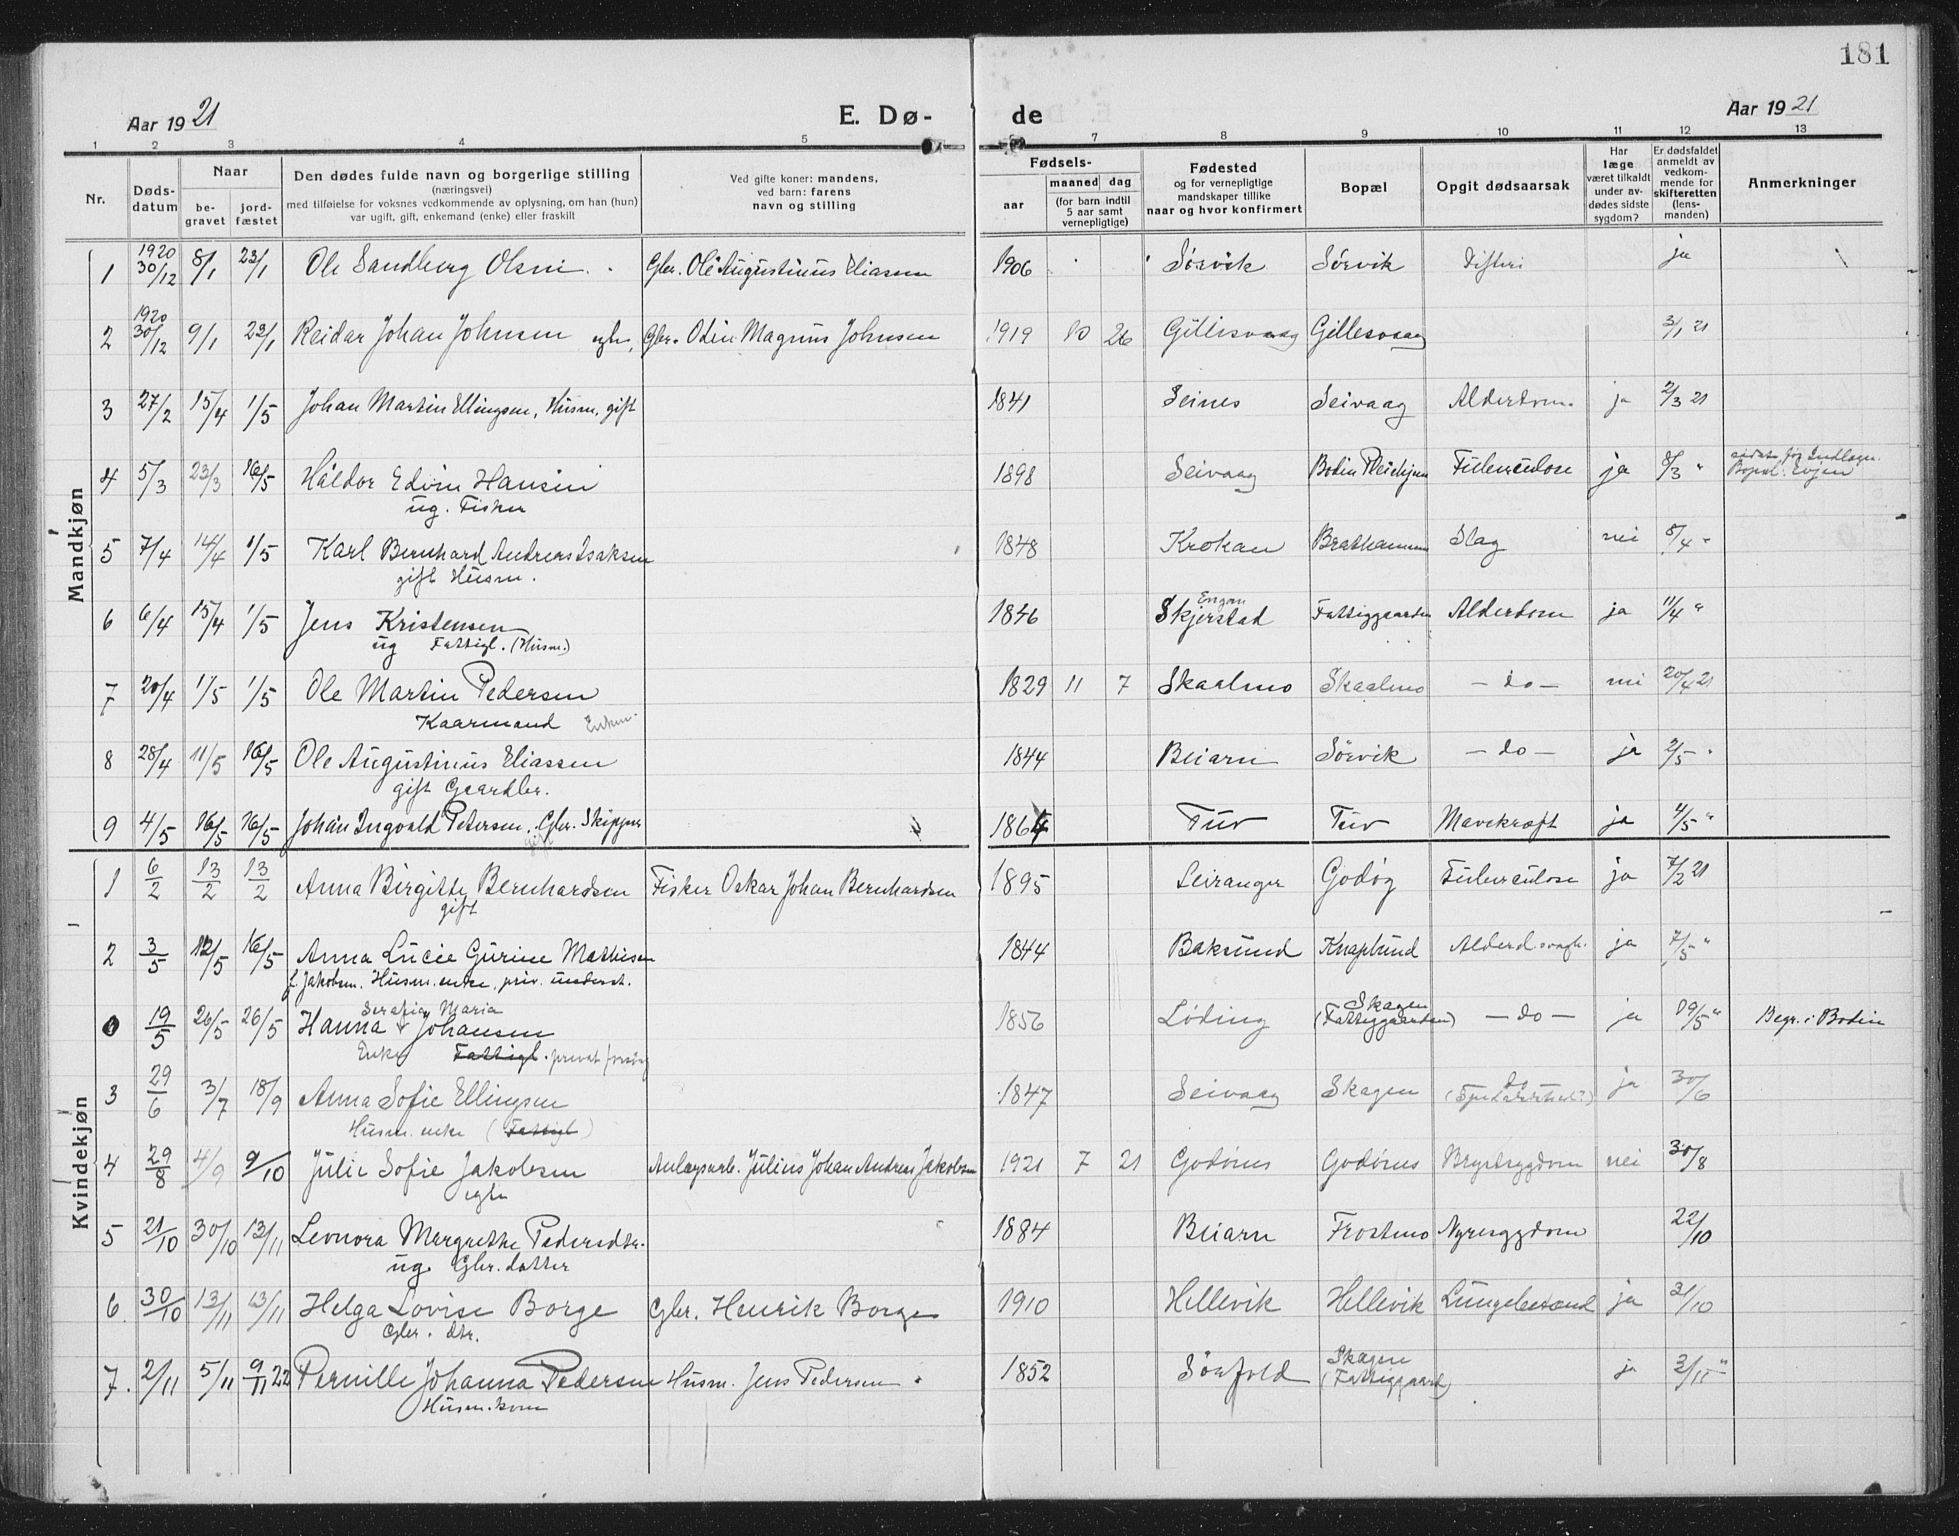 181
Aar 1921 E. Dø- de Aar 1921
1 2 3 4 5 7 8 9 10 11 12 13
Nr. Døds-datum Naar be-gravet jord-fæstet Den dødes fulde navn og borgerlige stilling (næringsvei) med tilføielse for voksnes vedkommende av oplysning, om han (hun) var ugift, gift, enkemand (enke) eller fraskilt Ved gifte koner: mandens, ved barn: farens navn og stilling Fødsels- aar maaned dag (for barn indtil 5 aar samt vernepligtige) Fødested og for vernepligtige mandskaper tillike naar og hvor konfirmert Bopæl Opgit dødsaarsak Har læge været tilkaldt under av-dødes sidste sygdom? Er dødsfaldet anmeldt av vedkom-mende for skifteretten (lens-manden) Anmerkninger
Mandkjøn
1 1920 30/12 8/1 23/1 Ole Sandberg Olsen Gbr. Ole Augustinus Eliassen 1906 Sørvik Sørvik Difteri ja
2 1920 30/12 9/1 23/1 Reidar Johan Johnsen egte, Gbr. Odin Magnus Johnsen 1919 10 26 Gillesvaag Gillesvaag 3/1 21
3 27/2 15/4 1/5 Johan Martin Ellingsen, Husm, gift 1841 Seines Seivaag Alderdom ja 2/3 21
4 5/3 23/3 16/5 Haldor Edvin Hansen 1898 Seivaag Bodin Pleiehjem Tuberculose ja 8/3 " sidste for Indlæg.
ug. Fisker Bopæl: Evjen
5 7/4 14/4 1/5 Karl Bernhard Andreas Isaksen 1848 Krokan Brathammern Slag nei 8/4 "
gift Husm.
6 6/4 15/4 1/5 Jens Kristensen 1846 Engan Skjerstad Fattiggaarden Alderdom ja 11/4 "
ug Fattigl. (Husm.)
7 20/4 1/5 1/5 Ole Martin Pedersen 1829 11 7 Skaalmo Skaalmo - do - nei 20/4 21
Kaarmand Enkem.
8 28/4 11/5 16/5 Ole Augustinus Eliassen 1844 Beiarn Sørvik - do - ja 2/5 "
gift Gaardbr.
9 4/5 16/5 16/5 Johan Ingvald Petersen, Gbr. Skipper 1864 Tuv Tuv Mavekræft ja 4/5 "
gift
Kvindekjøn
1 6/2 13/2 13/2 Anna Birgitte Bernhardsen Fisker Oskar Johan Bernhardsen 1895 Leiranger Godøy Tuberculose ja 7/2 21
gift
2 3/5 12/5 16/5 Anna Lucie Gurine Mathisen 1844 Baksund Knaplund Alderd. svagh. ja 7/5 "
f. Jakobsen, Husm. enke, priv. underst.
0 19/5 26/5 26/5 Hanna Serafia Maria Johansen 1856 Løding Skagen (Fattiggaarden) - do - ja 19/5 " Begr. i Bodin
Enke Fattigl. privat forsørg
3 29/6 3/7 18/9 Anna Sofie Ellingsen 1847 Seivaag Skagen do ja 30/6
Husm. enke (Fattigl)
4 29/8 4/9 9/10 Julie Sofie Jakobsen Anlægsarb. Julius Johan Andreas Jakobsen 1921 7 21 Godønes Godønes Brystsygdom nei 30/8
egte
5 21/10 30/10 13/11 Leonora Margrethe Pedersdtr. 1884 Beiarn Frostmo Nyresygdom 22/10
ug. Gbr. datter
6. 30/10 13/11 13/11 Helga Lovise Borge Gbr. Henrik Borge 1910 Hellevik Hellevik Lungebetænd ja 31/10
Gbr. dtr.
7. 2/11 5/11 9/11 22 Pernille Johanna Pedersen Husm. Jens Pedersen 1852 Sørfold Skagen (Fattiggaard) ja 3/11 "
Husm. kone